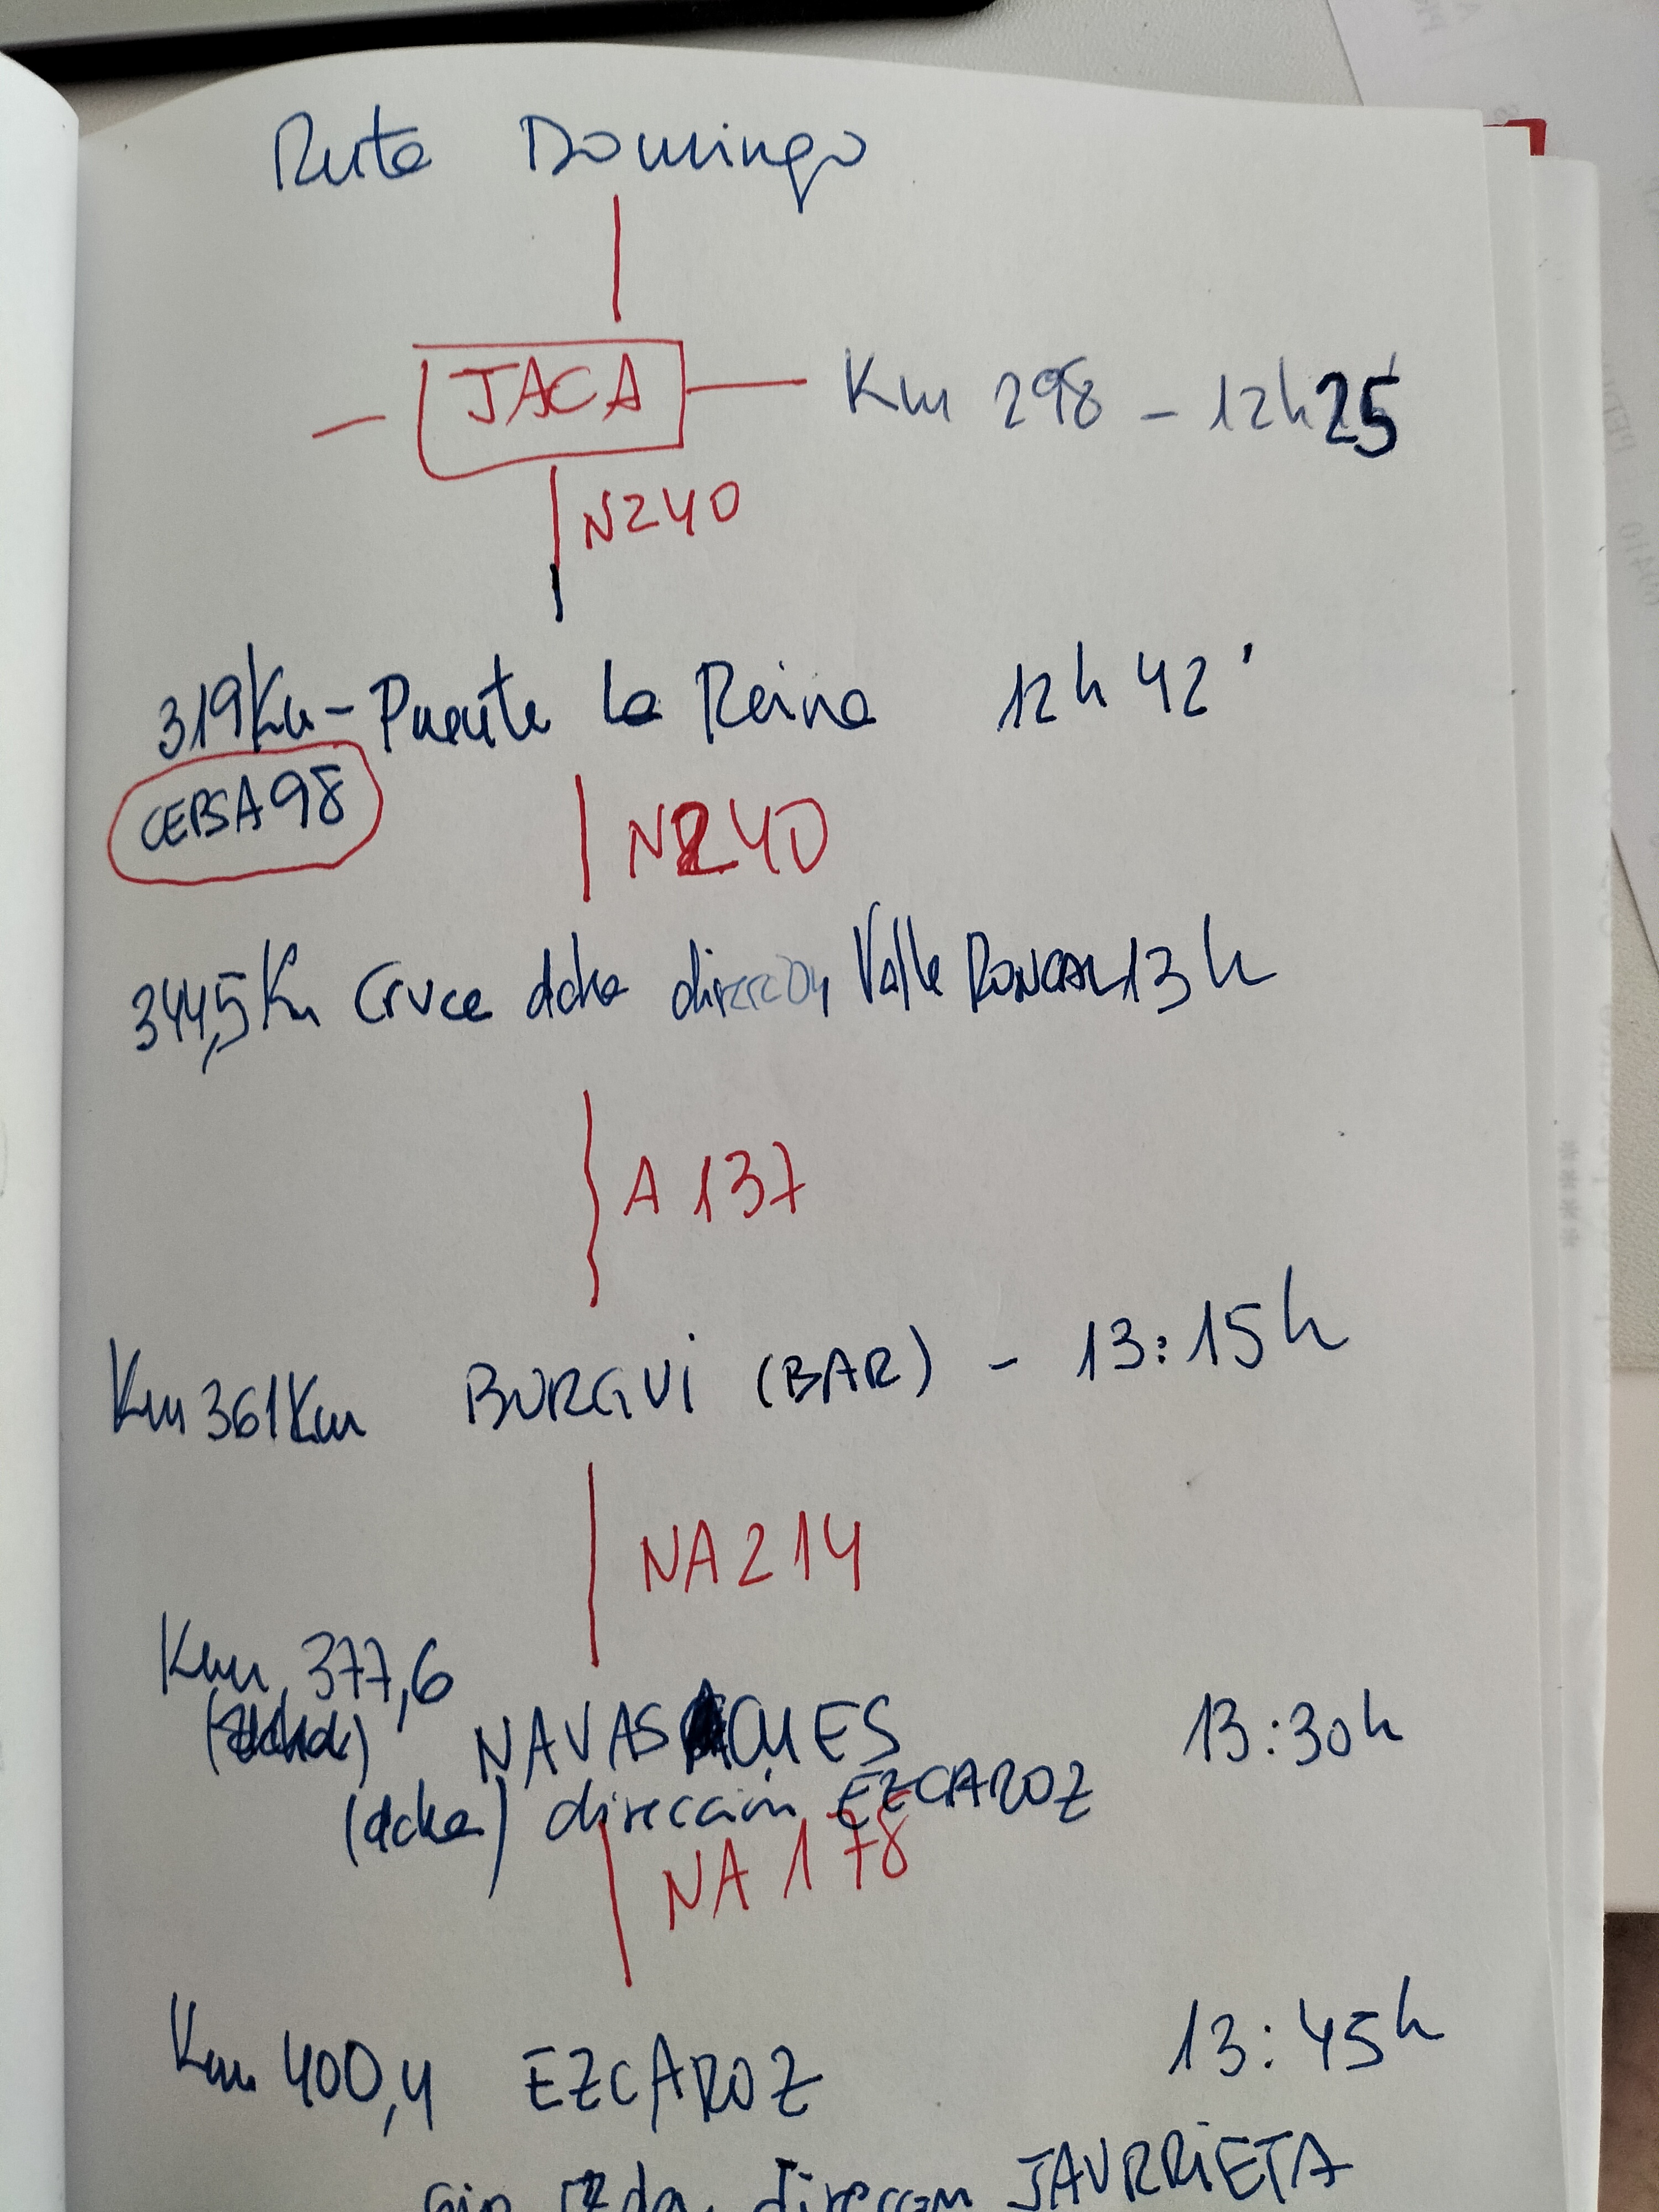 Ruta Domingo
JACA Km 298 - 12h25'
N240
319Km - Puente la Reina 12h42'
CEPSA98
N240
344,5Km Cruce dcha dirección Valle RONCAL 13h
A 137
Km 361Km BURGUI (BAR) - 13:15h
NA 214
Km 377,6
NAVASCUES 13:30h
(dcha) dirección EZCAROZ
NA 178
Km 400,4 EZCAROZ 13:45h
Izda. JAURRIETA